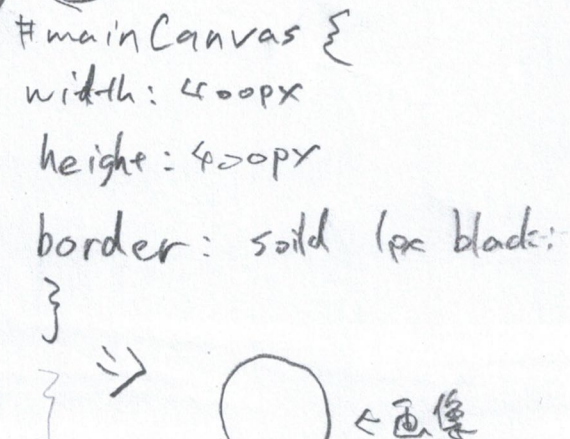 #mainCanvas {
width: 400px
height: 400px
border: soild 1px black;
}
}
⇒
←画像